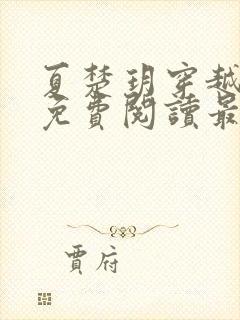 夏楚玥穿越
免費閱讀最
賈府